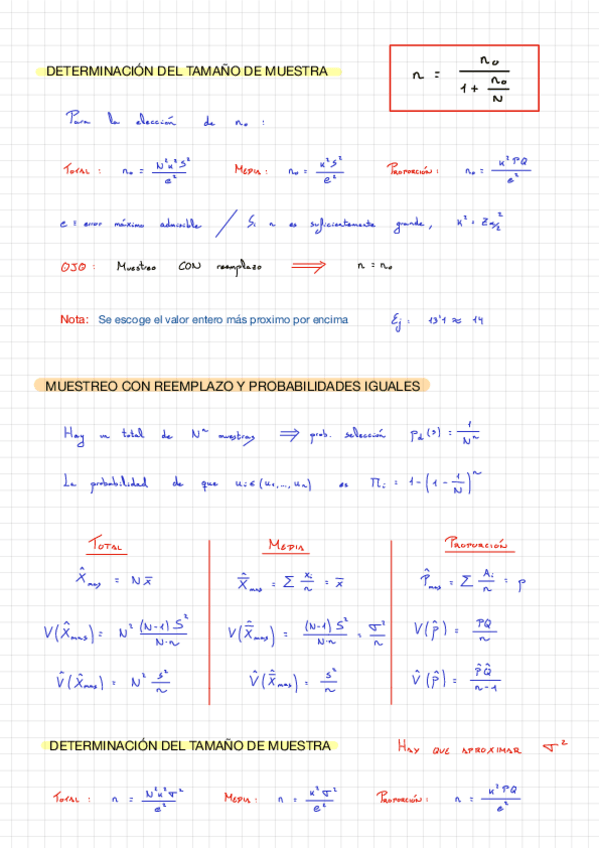 DETERMINACIÓN DEL TAMAÑO DE MUESTRA
n = n₀ / (1 + n₀/N)
Para la elección de n₀ :
TOTAL : n₀ = N²k²S² / e² MEDIA : n₀ = k²S² / e² PROPORCIÓN : n₀ = k²PQ / e²
e = error máximo admisible / Si n es suficientemente grande, k² = Zα/₂²
OJO : Muestreo CON reemplazo ⟹ n = n₀
Nota: Se escoge el valor entero más proximo por encima Ej : 13'1 ≈ 14
MUESTREO CON REEMPLAZO Y PROBABILIDADES IGUALES
Hay un total de Nⁿ muestras ⟹ prob. selección pd(s) = 1/Nⁿ
La probabilidad de que uᵢ ∈ (u₁,...,uₙ) es Πᵢ = 1-(1-1/N)ⁿ
TOTAL MEDIA PROPORCIÓN
X̂mas = N x̄ X̄̂mas = Σ xᵢ/n = x̄ P̂mas = Σ Aᵢ/n = p
V(X̂mas) = N² (N-1)S² / N·n V(X̄̂mas) = (N-1)S² / N·n = σ²/n V(p̂) = PQ/n
V̂(X̂mas) = N² s²/n V̂(X̄̂mas) = s²/n V̂(p̂) = p̂Q̂ / n-1
DETERMINACIÓN DEL TAMAÑO DE MUESTRA HAY QUE APROXIMAR σ²
TOTAL : n = N²k²σ² / e² MEDIA : n = k²σ² / e² PROPORCIÓN : n = k²PQ / e²